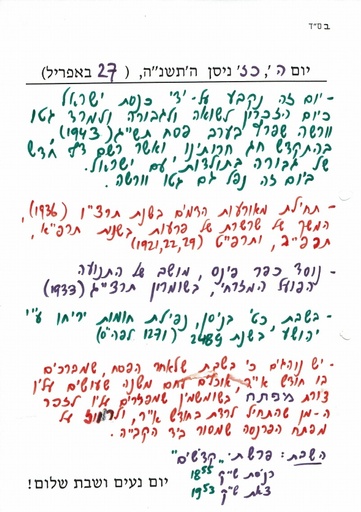 בס"ד
יום ה', כז' ניסן ה'תשנ"ה, (27 באפריל)
- יום זה נקבע על-ידי כנסת ישראל,
כיום הזכרון לשואה ולגבורה ולמרד גטו
וורשה שפרץ בערב פסח תש"ג (1943),
בהתקדש חג חרותינו ואשר רשם דף חדש
של גבורה בתולדות עם ישראל.
ביום זה נפל גם גטו וורשה.
- תחילת מאורעות הדמים בשנת תרצ"ו (1936),
המשך של שרשרת של פרעות בשנות תרפ"א,
תרפ"ב, ותרפ"ט (1921,22,29)
- נוסד כפר פינס, מושב של התנועה
הפועל המזרחי, בשומרון תרצ"ג (1933)
- בשבת כט' בניסן, נפילת חומות יריחו ע"י
יהושע, בשנת 2489 (1271 לפה"ס)
- יש נוהגים כי בשבת שלאחר הפסח, שמברכים
בו חודש אייר אוכלים לחם משנה שעושים עליו
צורת מפתח, בשומשמין שמפזרים עליו לזכר
ה-מן שהתחיל לרדת בחודש אייר, ולרמוז על
מפתח הפרנסה שמסור ביד הקב"ה.
השבת: פרשת: "קדשים"
כניסת ש"ק 1855
צאת ש"ק 1953
יום נעים ושבת שלום!